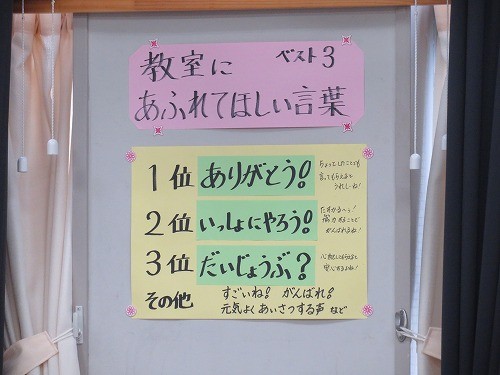 教室に ベスト3
あふれてほしい言葉
1位 ありがとう!
ちょっとしたことでも
言ってもらえると
うれしーね!
2位 いっしょにやろう!
たすかるへっ!
協力することで
がんばれるね!
3位 だいじょうぶ?
心配してもらえると
安心するよね!
その他 すごいね! がんばれ!
元気よくあいさつする声 など